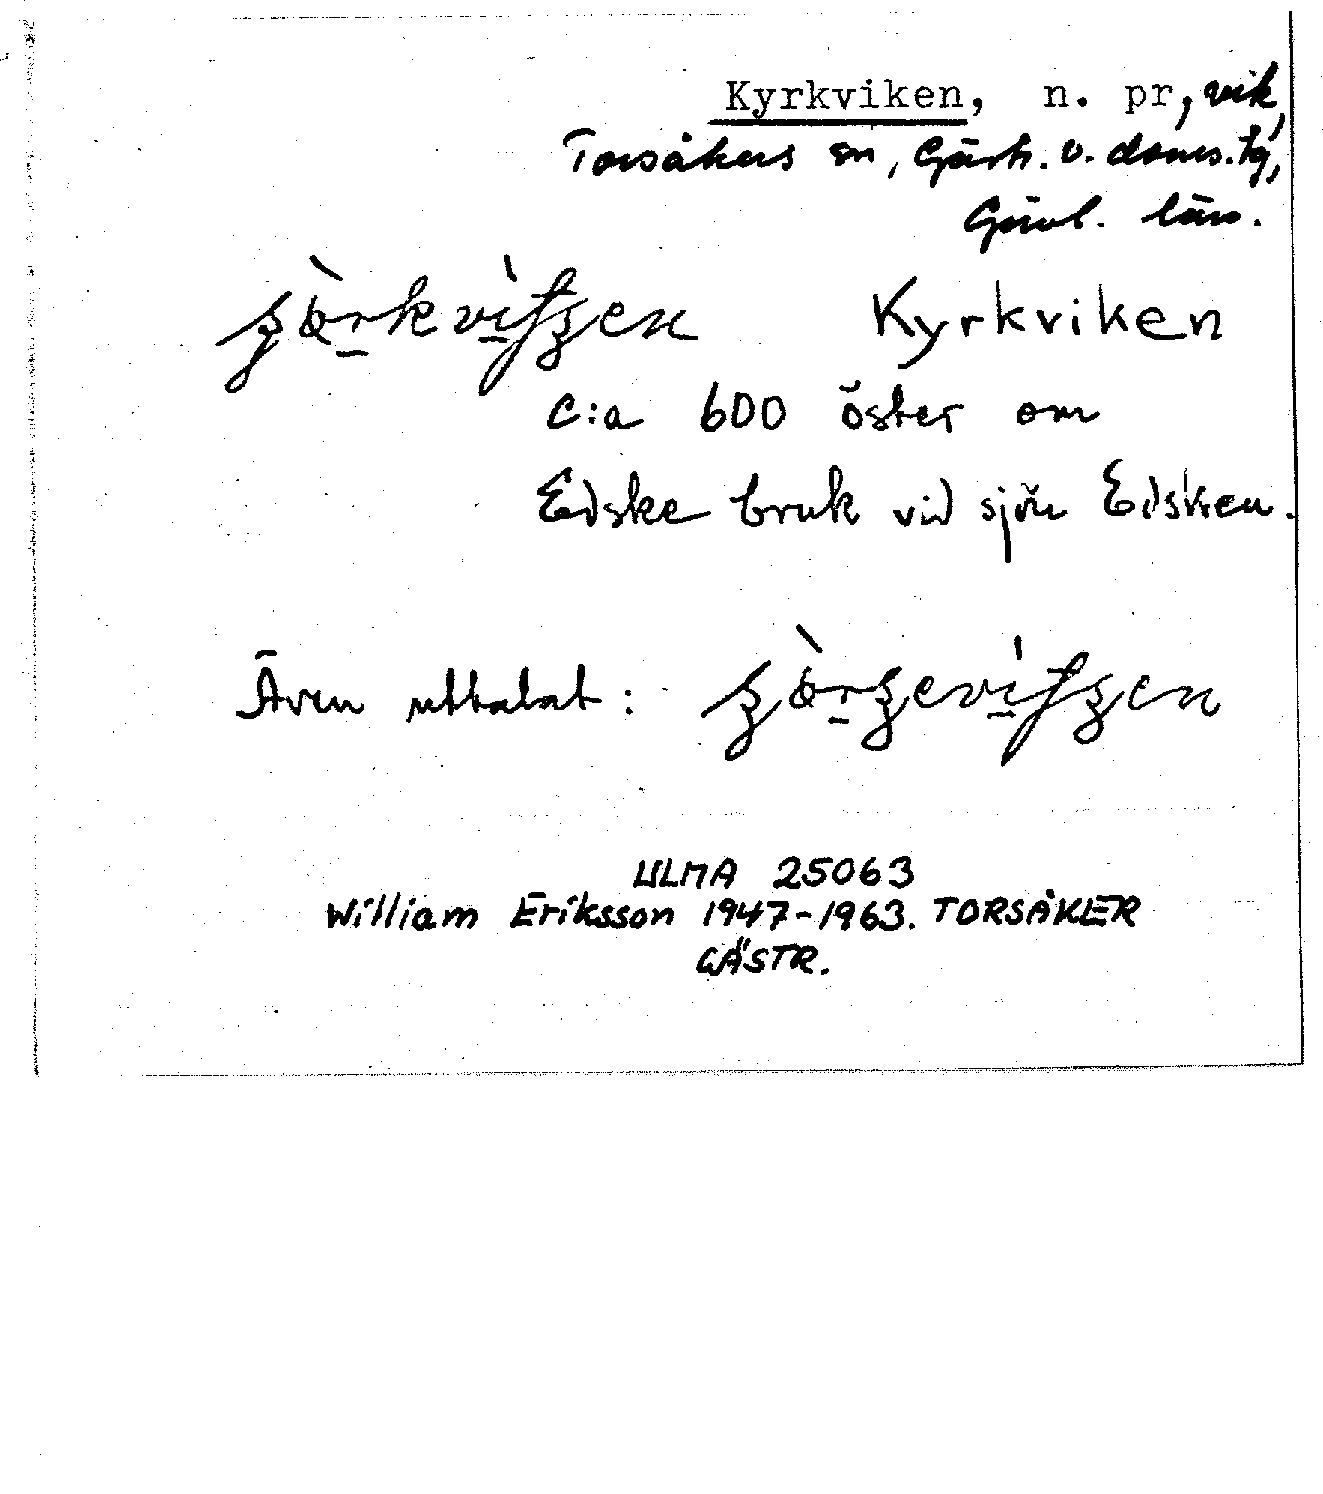 Kyrkviken, n. pr, vik,
Torsåkers sn, Gästr. v. doms. tg,
Gävl. län.
Kyrkviken
c:a 600 öster om
Edske bruk vid sjön Edsken.
Även uttalat:
ULMA 25063
William Eriksson 1947-1963. TORSÅKER
GÄSTR.